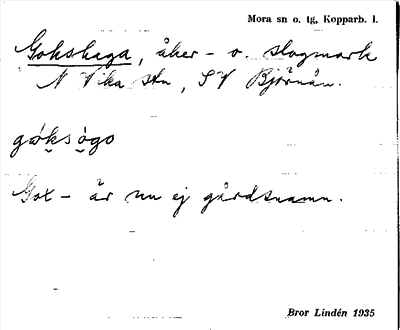 Mora sn o. tg, Kopparb. l.
Gokshaga, åker- o. slogmark
N Vika stn, SV Björnån.
gǿksògo
Gox- är nu ej gårdsnamn.
Bror Lindén 1935